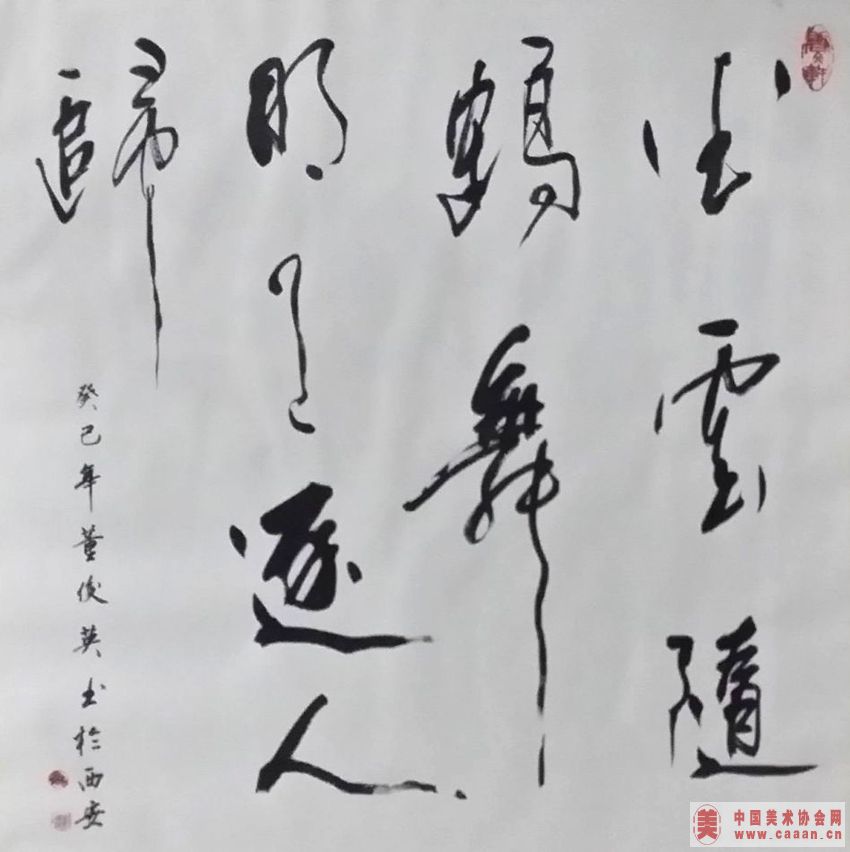 雲隨
鶴舞
明月逐人
歸
癸巳年董俊英书於西安
中国美术协会网
www.caaan.cn